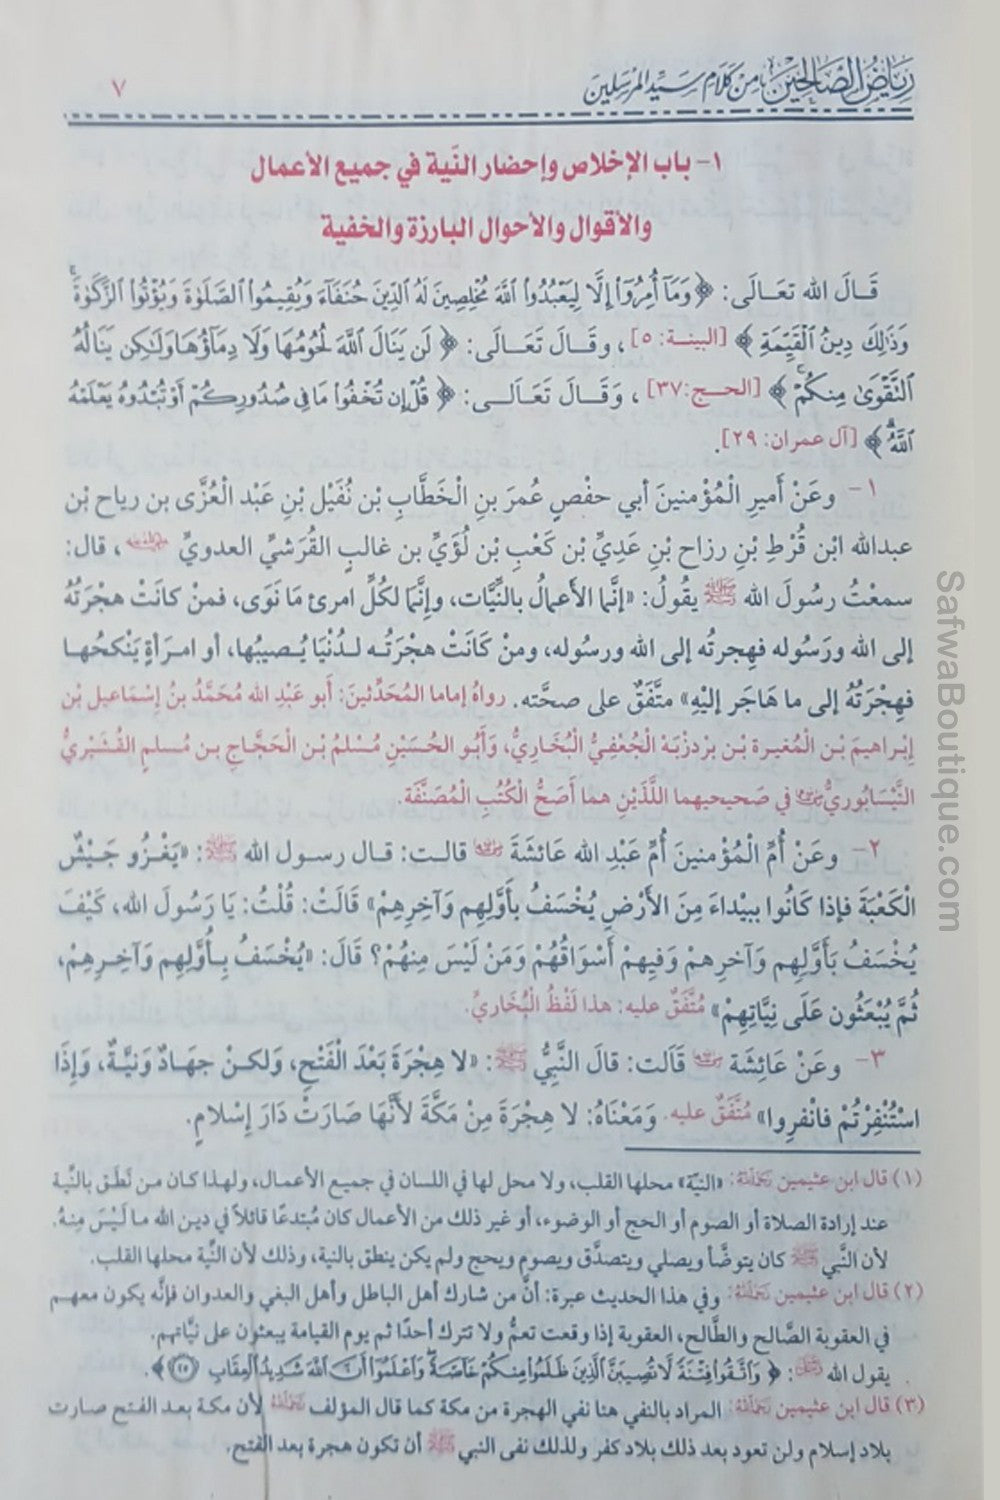 رِيَاضُ الصَّالِحِيْنَ مِنْ كَلَامِ سَيِّدِ الْمُرْسَلِينَ
٧
١- باب الإخلاص وإحضار النَّية في جميع الأعمال
والأقوال والأحوال البارزة والخفية
قَـالَ الله تعَـالَى: ﴿وَمَآ أُمِرُوٓاْ إِلَّا لِيَعْبُدُواْ ٱللَّهَ مُخْلِصِينَ لَهُ ٱلدِّينَ حُنَفَآءَ وَيُقِيمُواْ ٱلصَّلَوٰةَ وَيُؤْتُواْ ٱلزَّكَوٰةَۚ
وَذَٰلِكَ دِينُ ٱلْقَيِّمَةِ﴾ [البينـة: ٥]، وقَــالَ تَعَــالَى: ﴿لَن يَنَالَ ٱللَّهَ لُحُومُهَا وَلَا دِمَآؤُهَا وَلَٰكِن يَنَالُهُ
ٱلتَّقْوَىٰ مِنكُمْۚ﴾ [الحــج:٣٧]، وَقَــالَ تَعَـالَــى: ﴿قُلْ إِن تُخْفُواْ مَا فِى صُدُورِكُمْ أَوْ تُبْدُوهُ يَعْلَمْهُ
ٱللَّهُۗ﴾ [آل عمران: ٢٩].
١- وعَنْ أَميرِ الْمُؤْمنينَ أبي حفْصٍ عُمرَ بنِ الْخَطَّابِ بْن نُفَيْل بْنِ عَبْد الْعُزَّى بن رياح بْن
عبدالله ابْن قُرْطِ بْنِ رزاح بْنِ عَدِيِّ بْن كَعْبِ بْن لُؤَيِّ بن غالبٍ القُرَشيِّ العدويِّ رضي الله عنه، قال:
سمعْتُ رسُولَ الله ﷺ يقُولُ: «إنَّما الأَعمالُ بالنِّيَّات، وإِنَّمَا لكُلِّ امرئ مَا نَوَى، فمنْ كانَتْ هجْرَتُهُ
إلى الله ورَسُوله فهجرتُه إلى الله ورسُوله، ومنْ كَانَتْ هجْرَتُــه لـدُنْيَا يُـصيبُها، أو امـرَأةٍ يَنْكحُهـا
فهِجْرَتُهُ إلى ما هَاجَر إليْهِ» متَّفَقٌ على صحَّته. رواهُ إماما المُحَدِّثينَ: أبو عَبْدِ الله مُحَمَّدُ بنُ إسْمَاعيل بْن
إبْراهيمَ بْن الْمُغيـرة بْـن بـرْدزبَـهْ الْجُعْفِيُّ الْبُخَـارِيُّ، وَأَبُـو الحُسَيْنِ مُسْلمُ بْـن الْحَجَّاج بـن مُـسلمٍ القُـشَيْريُّ
النَّيْسَابُوريُّ رضي الله عنهما في صَحيحيهما اللَّذَيْنِ هما أَصَحُّ الْكُتُبِ الْمُصَنَّفَة.
٢- وعَنْ أُمِّ الْمُؤْمنينَ أُمِّ عَبْدِ الله عَائشَةَ رضي الله عنها قالـت: قـال رسـول الله ﷺ: «يَغْـزُو جَـيْشٌ
الْكَعْبَةَ فإذا كَانُوا ببيْداءَ مِنَ الأَرْضِ يُخْسَفُ بأَوَّلِهِم وَآخِرِهِمْ» قَالَتْ: قُلْتُ: يَا رَسُولَ الله، كَيْفَ
يُخْسَفُ بَأَوَّلِهِم وَآخرِهمْ وَفِيهِمْ أَسْوَاقُهُمْ وَمَنْ لَيْسَ مِنهُمْ؟ قَالَ: «يُخْسَفُ بِـأَوَّلِهِم وَآخِـرِهِمْ،
ثُمَّ يُبْعَثُون عَلَى نِيَّاتِهِمْ» مُتَّفَقٌ عليه: هذا لَفْظُ الْبُخَاريِّ.
٣- وعَنْ عَائِشَة رضي الله عنها قَالَت: قالَ النَّبِيُّ ﷺ: «لا هِجْرَةَ بَعْدَ الْفَتْحِ، وَلكـنْ جهَـادٌ وَنيَّـةٌ، وَإِذَا
اسْتُنْفِرْتُمْ فانْفرِوا» مُتَّفَقٌ عليه. وَمَعْنَاهُ: لا هِجْرَةَ مِنْ مَكَّةَ لأَنَّهَا صَارَتْ دَارَ إِسْلامٍ.
(١) قال ابن عثيمين رَحِمَهُ اللَّهُ: «النيَّة» محلها القلب، ولا محل لها في اللسان في جميع الأعمال، ولهذا كان من نَطَق بالنِّية
عند إرادة الصلاة أو الصوم أو الحج أو الوضوء، أو غير ذلك من الأعمال كان مُبتدعًا قائلاً في دين الله ما لَيْسَ مِنهُ.
لأن النَّبي ﷺ كان يتوضَّأ ويصلي ويتصدَّق ويصوم ويحج ولم يكن ينطق بالنية، وذلك لأن النِّية محلها القلب.
(٢) قال ابن عثيمين رَحِمَهُ اللَّهُ: وفي هذا الحديث عبرة: أنَّ من شارك أهل الباطل وأهل البغي والعدوان فإنَّه يكون معهـم
في العقوبة الصَّالح والطَّالح، العقوبة إذا وقعت تعمُّ ولا تترك أحدًا ثم يوم القيامة يبعثون على نيَّاتهم.
يقول الله ﷻ: ﴿وَٱتَّقُواْ فِتْنَةً لَّا تُصِيبَنَّ ٱلَّذِينَ ظَلَمُواْ مِنكُمْ خَآصَّةً وَٱعْلَمُوٓاْ أَنَّ ٱللَّهَ شَدِيدُ ٱلْعِقَابِ ﴿٢٥﴾﴾.
(٣) قال ابن عثيمين رَحِمَهُ اللَّهُ: المراد بالنفي هنا نفي الهجرة من مكة كما قال المؤلف رَحِمَهُ اللَّهُ لأن مكة بعـد الفـتح صـارت
بلاد إسلام ولن تعود بعد ذلك بلاد كفر ولذلك نفى النبي ﷺ أن تكون هجرة بعد الفتح.
SafwaBoutique.com